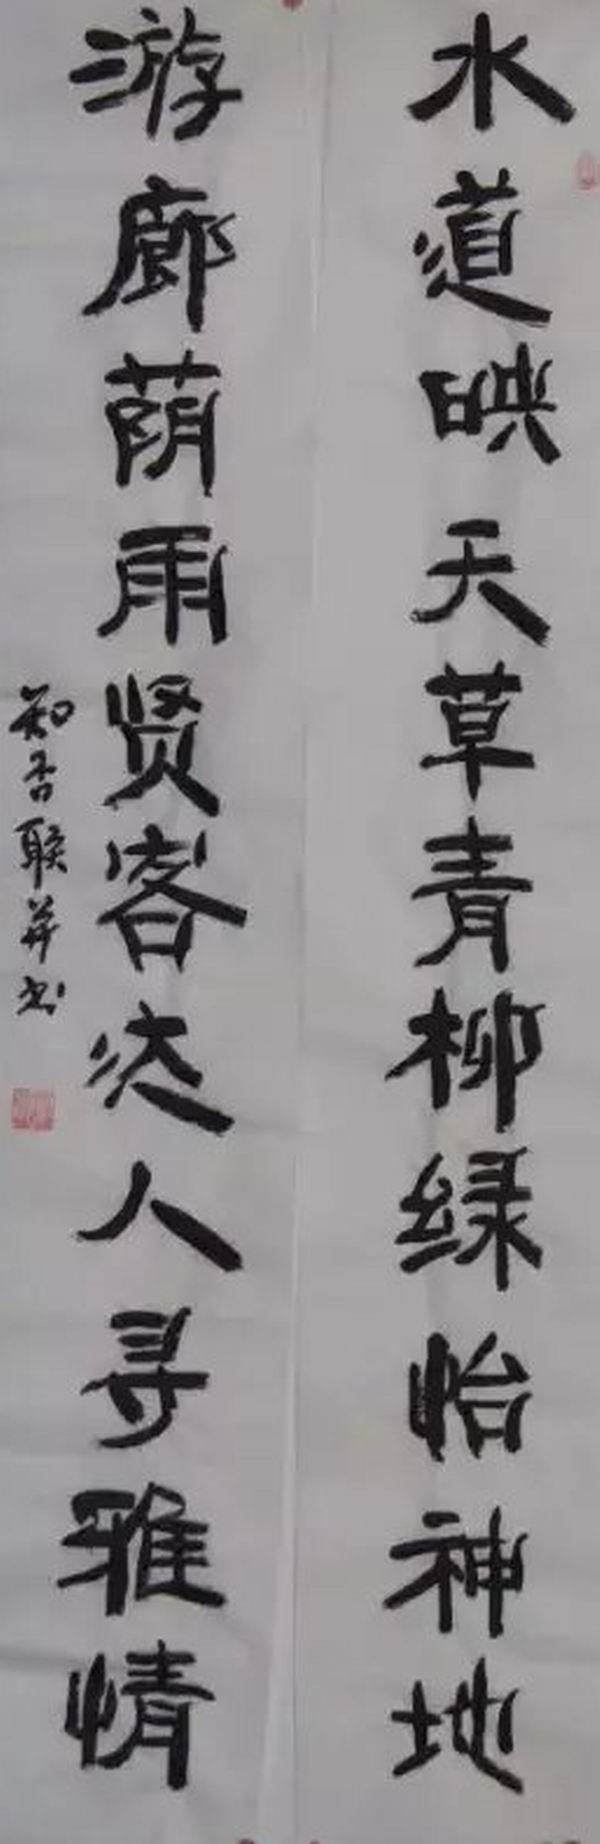 水道映天草青柳绿怡神地
游廊荫雨贤客达人寻雅情
知否联并书